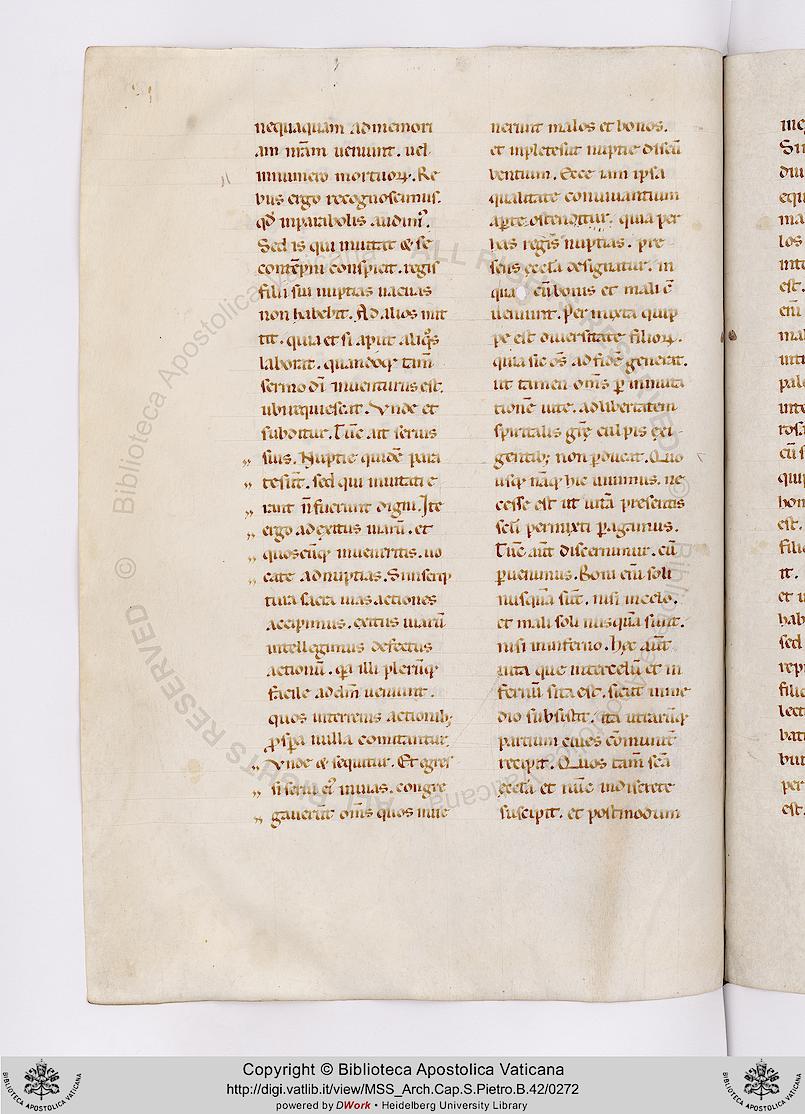 nequaquam ad memori
am mãm ueniunt. uel
in numero mortuoꝝ. Re
bus ergo recognoscimus.
qđ in parabolis audim᾽.
Sed is qui inuitat & se
contẽpni conspicit. regis
filii sui nuptias uacuas
non habebit. Ad alios mit
tit. quia et si aput aliq̃s
laborat. quandoq; tam̃
sermo dĩ inuenturus est.
ubi requiescat. Vnde et
subditur. Tũc ait seruis
suis. Nuptie quidẽ para
te sũt. sed qui inuitati e
rant ñ fuerunt digni. Ite
ergo ad exitus uiarũ. et
quoscũq; inueneritis. uo
cate ad nuptias. Si in scrip
tura sacra uias actiones
accipimus. exitus uiarũ
intellegimus defectus
actionũ. q̃a illi plerũq;
facile ad dm̃ ueniunt.
quos in terrenis actionib;
ꝓspera nulla comitantur.
Vnde & sequitur. Et egres
si serui ei᾽ in uias. congre
gauerũt om̃s quos inue
nerunt malos et bonos.
et inplete sũt nuptie discũ
bentium. Ecce iam ipsa
qualitate conuiuantium
aꝑte ostenditur. quia per
has regis nuptias. pre
sens eccl̃a designatur. in
qua cũ bonis et mali cõ
ueniunt. Permixta quip
pe est diuersitate filioꝝ.
quia sic om̃s ad fidẽ generat.
ut tamen om̃s ꝑ inmuta
tionẽ uite. ad libertatem
spiritalis grẽ culpis exi
gentib; non ꝑducat. Quo
usq; nãq; hic uiuimus. ne
cesse est ut uiã presentis
sc̃li permixti ꝑagamus.
Tũc aũt discernimur. cũ
ꝑuenimus. Boni eni̅ soli
nusquã sũt. nisi in celo.
et mali soli nusquã sunt.
nisi in inferno. hęc aũt
uita que inter celũ et in
fernũ sita est. sicut in me
dio subsistit. ita utrarũq;
partium ciues cõmunit̃
recipit. Quos tam̃ sc̃a
eccl̃a et nũc indiscrete
suscipit. et postmodum
Copyright © Biblioteca Apostolica Vaticana
http://digi.vatlib.it/view/MSS_Arch.Cap.S.Pietro.B.42/0272
powered by DWork • Heidelberg University Library